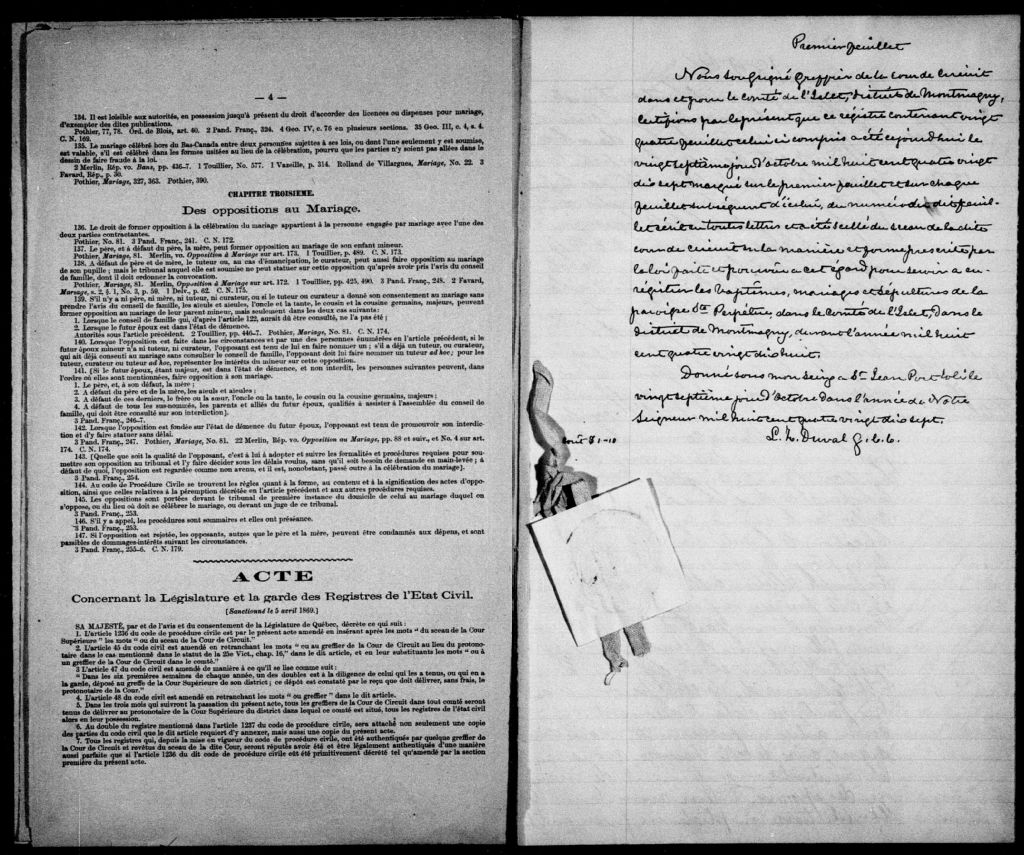 — 4 —
134. Il est loisible aux autorités, en possession jusqu'à présent du droit d'accorder des licences ou dispenses pour mariage,
d'exempter des dites publications.
Pothier, 77, 78. Ord. de Blois, art. 40. 2 Pand. Franç., 324. 4 Geo. IV, c. 76 en plusieurs sections. 35 Geo. III, c. 4, s. 4.
C. N. 169.
135. Le mariage célébré hors du Bas-Canada entre deux personnes sujettes à ses lois, ou dont l'une seulement y est soumise,
est valable, s'il est célébré dans les formes usitées au lieu de la célébration, pourvu que les parties n'y soient pas allées dans le
dessin de faire fraude à la loi.
2 Merlin, Rép. vo. Bans, pp. 436-7. 1 Touillier, No. 577. 1 Vazeille, p. 314. Rolland de Villargues, Mariage, No. 22. 3
Favard, Rép., p. 30.
Pothier, Mariage, 327, 363. Pothier, 390.
CHAPITRE TROISIEME.
Des oppositions au Mariage.
136. Le droit de former opposition à la célébration du mariage appartient à la personne engagée par mariage avec l'une des
deux parties contractantes.
Pothier, No. 81. 3 Pand. Franç., 241. C. N. 172.
137. Le père, et à défaut du père, la mère, peut former opposition au mariage de son enfant mineur.
Pothier, Mariage, 81. Merlin, vo. Opposition à Mariage sur art. 173. 1 Touillier, p. 489. C. N. 173.
138. A défaut de père et de mère, le tuteur ou, au cas d'émancipation, le curateur, peut aussi faire opposition au mariage
de son pupille; mais le tribunal auquel elle est soumise ne peut statuer sur cette opposition qu'après avoir pris l'avis du conseil
de famille, dont il doit ordonner la convocation.
Pothier, Mariage, 81. Merlin, Opposition à Mariage sur art. 172. 1 Touillier, pp. 425, 490. 3 Pand. Franç., 248. 2 Favard,
Mariage, s. 2, § 1, No. 3, p. 59. 1 Delv., p. 62. C. N. 175.
139. S'il n'y a ni père, ni mère, ni tuteur, ni curateur, ou si le tuteur ou curateur a donné son consentement au mariage sans
prendre l'avis du conseil de famille, les aïeuls et aïeules, l'oncle et la tante, le cousin et la cousine germains, majeurs, peuvent
former opposition au mariage de leur parent mineur, mais seulement dans les deux cas suivants:
1. Lorsque le conseil de famille qui, d'après l'article 122, aurait dû être consulté, ne l'a pas été;
2. Lorsque le futur époux est dans l'état de démence.
Autorités sous l'article précédent. 2 Touillier, pp. 446-7. Pothier, Mariage, No. 81. C. N. 174.
140. Lorsque l'opposition est faite dans les circonstances et par une des personnes énumérées en l'article précédent, si le
futur époux mineur n'a ni tuteur, ni curateur, l'opposant est tenu de lui en faire nommer un; s'il a déjà un tuteur, ou curateur,
qui ait déjà consenti au mariage sans consulter le conseil de famille, l'opposant doit lui faire nommer un tuteur ad hoc; pour les
tuteur, curateur ou tuteur ad hoc, représenter les intérêts du mineur sur cette opposition.
141. [Si le futur époux, étant majeur, est dans l'état de démence, et non interdit, les personnes suivantes peuvent, dans
l'ordre où elles sont mentionnées, faire opposition à son mariage.
1. Le père, et, à son défaut, la mère;
2. A défaut du père et de la mère, les aïeuls et aïeules;
3. A défaut de ces derniers, le frère ou la sœur, l'oncle ou la tante, le cousin ou la cousine germains, majeurs;
4. A défaut de tous les sus-nommés, les parents et alliés du futur époux, qualifiés à assister à l'assemblée du conseil de
famille, qui doit être consulté sur son interdiction].
3 Pand. Franç., 246-7.
142. Lorsque l'opposition est fondée sur l'état de démence du futur époux, l'opposant est tenu de promouvoir son interdic-
tion et d'y faire statuer sans délai.
3 Pand. Franç., 247. Pothier, Mariage, No. 81. 22 Merlin, Rép. vo. Opposition au Mariage, pp. 88 et suiv., et No. 4 sur art.
174. C. N. 174.
143. [Quelle que soit la qualité de l'opposant, c'est à lui à adopter et suivre les formalités et procédures requises pour sou-
mettre son opposition au tribunal et l'y faire décider sous les délais voulus, sans qu'il soit besoin de demande en main-levée; à
défaut de quoi, l'opposition est regardée comme non avenu, et il est, nonobstant, passé outre à la célébration du mariage].
3 Pand. Franç., 254.
144. Au code de Procédure Civile se trouvent les règles quant à la forme, au contenu et à la signification des actes d'oppo-
sition, ainsi que celles relatives à la péremption décrétée en l'article précédent et aux autres procédures requises.
145. Les oppositions sont portées devant le tribunal de première instance du domicile de celui au mariage duquel on
s'oppose, ou du lieu où doit se célébrer le mariage, ou devant un juge de ce tribunal.
3 Pand. Franç., 253.
146. S'il y a appel, les procédures sont sommaires et elles ont préséance.
3 Pand. Franç., 253.
147. Si l'opposition est rejetée, les opposants, autres que le père et la mère, peuvent être condamnés aux dépens, et sont
passibles de dommages-intérêts suivant les circonstances.
3 Pand. Franç., 255-6. C. N. 179.
ACTE
Concernant la Législature et la garde des Registres de l'Etat Civil.
[Sanctionné le 5 avril 1869.]
SA MAJESTÉ, par et de l'avis et du consentement de la Législature de Québec, décrète ce qui suit:
1. L'article 1236 du code de procédure civile est par le présent acte amendé en insérant après les mots "du sceau de la Cour
Supérieure" les mots "ou du sceau de la Cour de Circuit."
2. L'article 45 du code civil est amendé en retranchant les mots "ou au greffier de la Cour de Circuit au lieu du protono-
taire dans le cas mentionné dans le statut de la 25e Vict., chap. 16," dans le dit article, et en leur substituants les mots "ou à
un greffier de la Cour de Circuit dans le comté."
3 L'article 47 du code civil est amendé de manière à ce qu'il se lise comme suit:
"Dans les six premières semaines de chaque année, un des doubles est à la diligence de celui qui les a tenus, ou qui en a
la garde, déposé au greffe de la Cour Supérieure de son district; ce dépôt est constaté par le reçu que doit délivrer, sans frais, le
protonotaire de la Cour."
4. L'article 48 du code civil est amendé en retranchant les mots "ou greffier" dans le dit article.
5. Dans les trois mois qui suivront la passation du présent acte, tous les greffiers de la Cour de Circuit dans tout comté seront
tenus de délivrer au protonotaire de la Cour Supérieure du district dans lequel ce comté est situé, tous les registres de l'état civil
alors en leur possession.
6. Au double du registre mentionné dans l'article 1237 du code de procédure civile, sera attaché non seulement une copie
des parties du code civil que le dit article requiert d'y annexer, mais aussi une copie du présent acte.
7. Tous les registres qui, depuis la mise en vigueur du code de procédure civile, ont été authentiqués par quelque greffier de
la Cour de Circuit et revêtus du sceau de la dite Cour, seront réputés avoir été et être légalement authentiqués d'une manière
aussi parfaite que si l'article 1236 du dit code de procédure civile eût été primitivement décrété tel qu'amendé par la section
première du présent acte.
Premier feuillet
Nous soussigné greffier de la cour de circuit
dans et pour le comté de l'Islet, district de Montmagny,
certifions par le présent que ce régistre contenant vingt
quatre feuillets celui ci compris a été ce jourd'hui le
vingt septième jour d'octobre mil huit cent quatre vingt
dix sept marqué sur le premier feuillet et sur chaque
feuillet subséquent d'icelui, du numéro du dit feuil-
let écrit en toutes lettres et a été scellé du sceau de la dite
cour de circuit en la manière et forme prescrite par
la loi faite et pourvue a cet égard pour servir a en-
régistrer les baptêmes, mariages et sépultures de la
paroisse Ste Perpétue, dans le Comté de l'Islet, dans le
district de Montmagny, durant l'année mil huit
cent quatre vingt dix huit.
Donné sous mon seing a St Jean Port Joli le
vingt septième jour d'octobre dans l'année de Notre
Seigneur mil huit cent quatre vingt dix sept.
L. Z. Duval G. C. C.